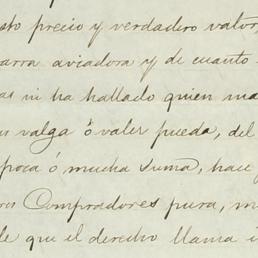 sto precio y verdadero valor,
arra aviadora y de cuanto
as ni ha hallado quien ma
as valga ó valer pueda, del
poca ó mucha suma, hace
res Compradores pura, m
le que el derecho llama i